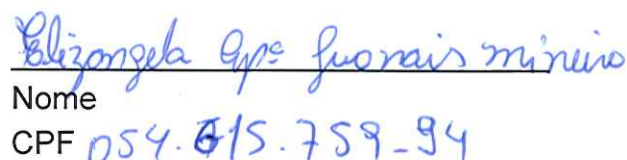 Elizangela Apª Guonais mineiro
Nome
CPF 054.615.759-94